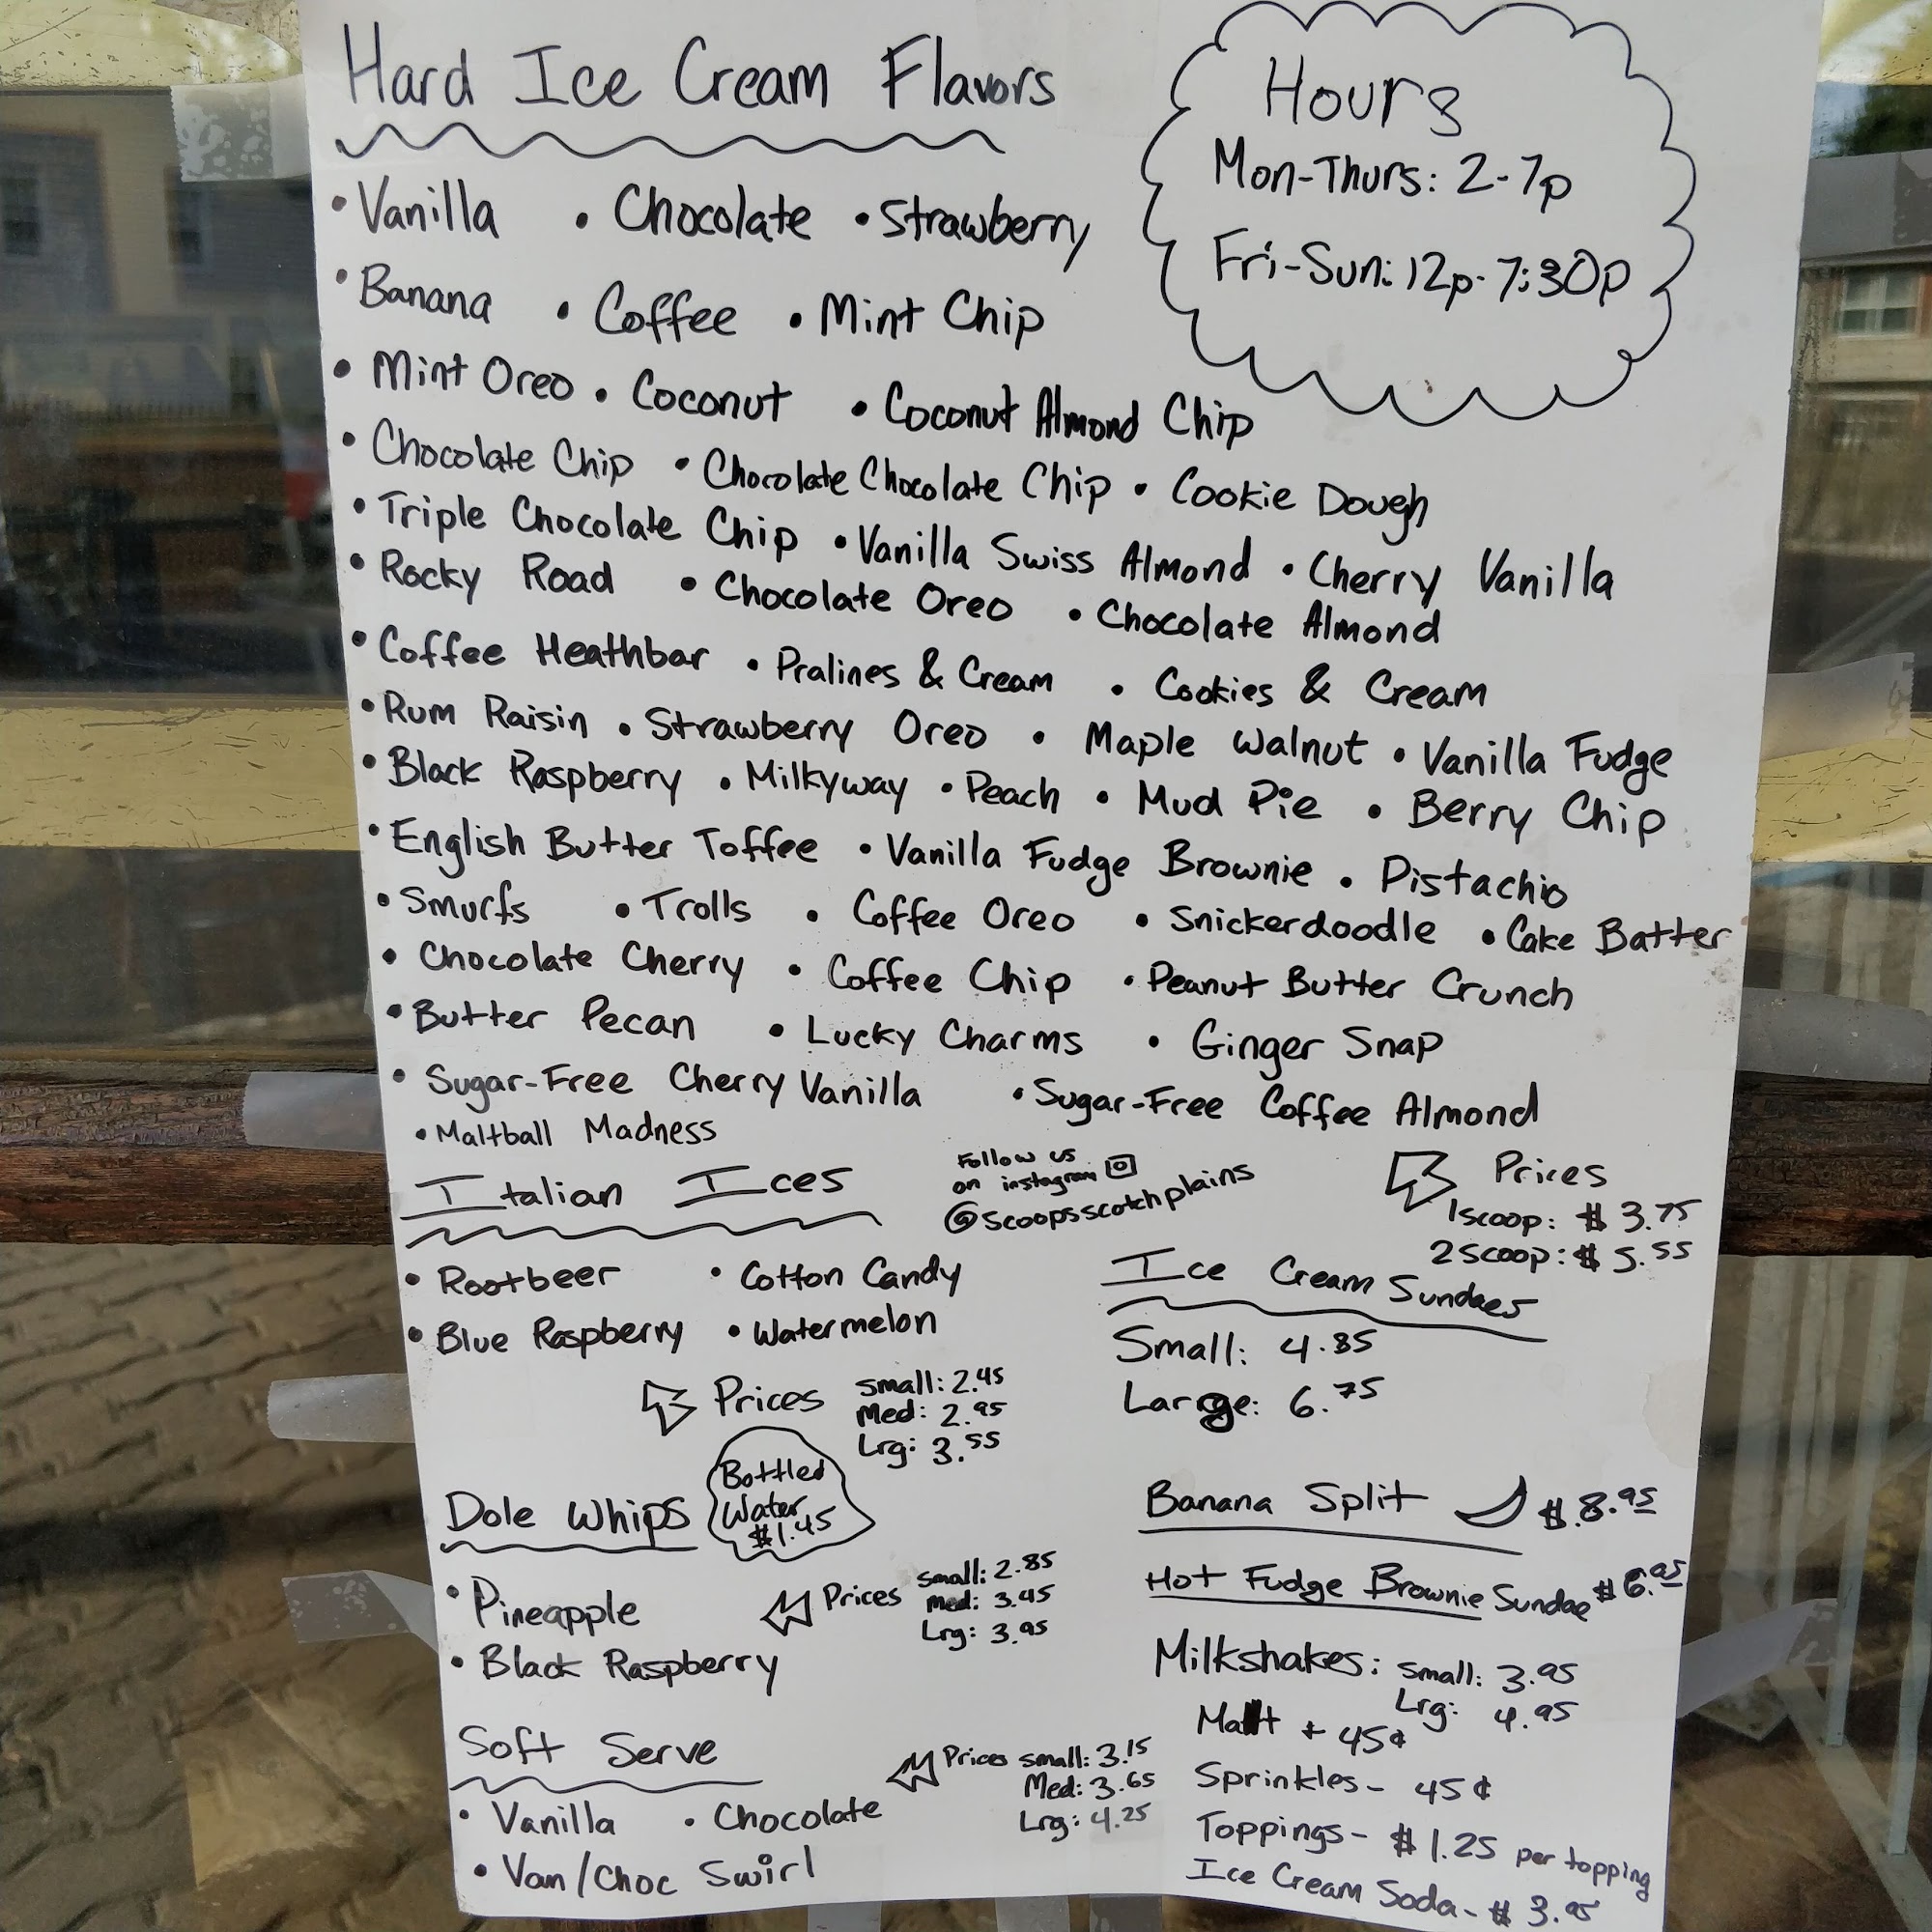 Hard Ice Cream Flavors
• Vanilla • Chocolate • Strawberry
• Banana • Coffee • Mint Chip
• Mint Oreo • Coconut • Coconut Almond Chip
• Chocolate Chip • Chocolate Chocolate Chip • Cookie Dough
• Triple Chocolate Chip • Vanilla Swiss Almond • Cherry Vanilla
• Rocky Road • Chocolate Oreo • Chocolate Almond
• Coffee Heathbar • Pralines & Cream • Cookies & Cream
• Rum Raisin • Strawberry Oreo • Maple Walnut • Vanilla Fudge
• Black Raspberry • Milkyway • Peach • Mud Pie • Berry Chip
• English Butter Toffee • Vanilla Fudge Brownie • Pistachio
• Smurfs • Trolls • Coffee Oreo • Snickerdoodle • Cake Batter
• Chocolate Cherry • Coffee Chip • Peanut Butter Crunch
• Butter Pecan • Lucky Charms • Ginger Snap
• Sugar-Free Cherry Vanilla • Sugar-Free Coffee Almond
• Maltball Madness
Hours
Mon-Thurs: 2-7p
Fri-Sun: 12p-7:30p
Follow us
on instagram
@scoopsscotchplains
Prices
1scoop: $3.75
2scoop: $5.55
Italian Ices
• Rootbeer • Cotton Candy
• Blue Raspberry • Watermelon
Prices
Small: 2.45
Med: 2.95
Lrg: 3.55
Bottled
Water
$1.45
Dole Whips
• Pineapple
• Black Raspberry
Prices
Small: 2.85
Med: 3.45
Lrg: 3.95
Soft Serve
• Vanilla • Chocolate
• Van/Choc Swirl
Prices
Small: 3.15
Med: 3.65
Lrg: 4.25
Ice Cream Sundaes
Small: 4.85
Large: 6.75
Banana Split $8.95
Hot Fudge Brownie Sundae $6.95
Milkshakes: Small: 3.95
Lrg: 4.95
Malt + 45¢
Sprinkles - 45¢
Toppings - $1.25 per topping
Ice Cream Soda - $3.95